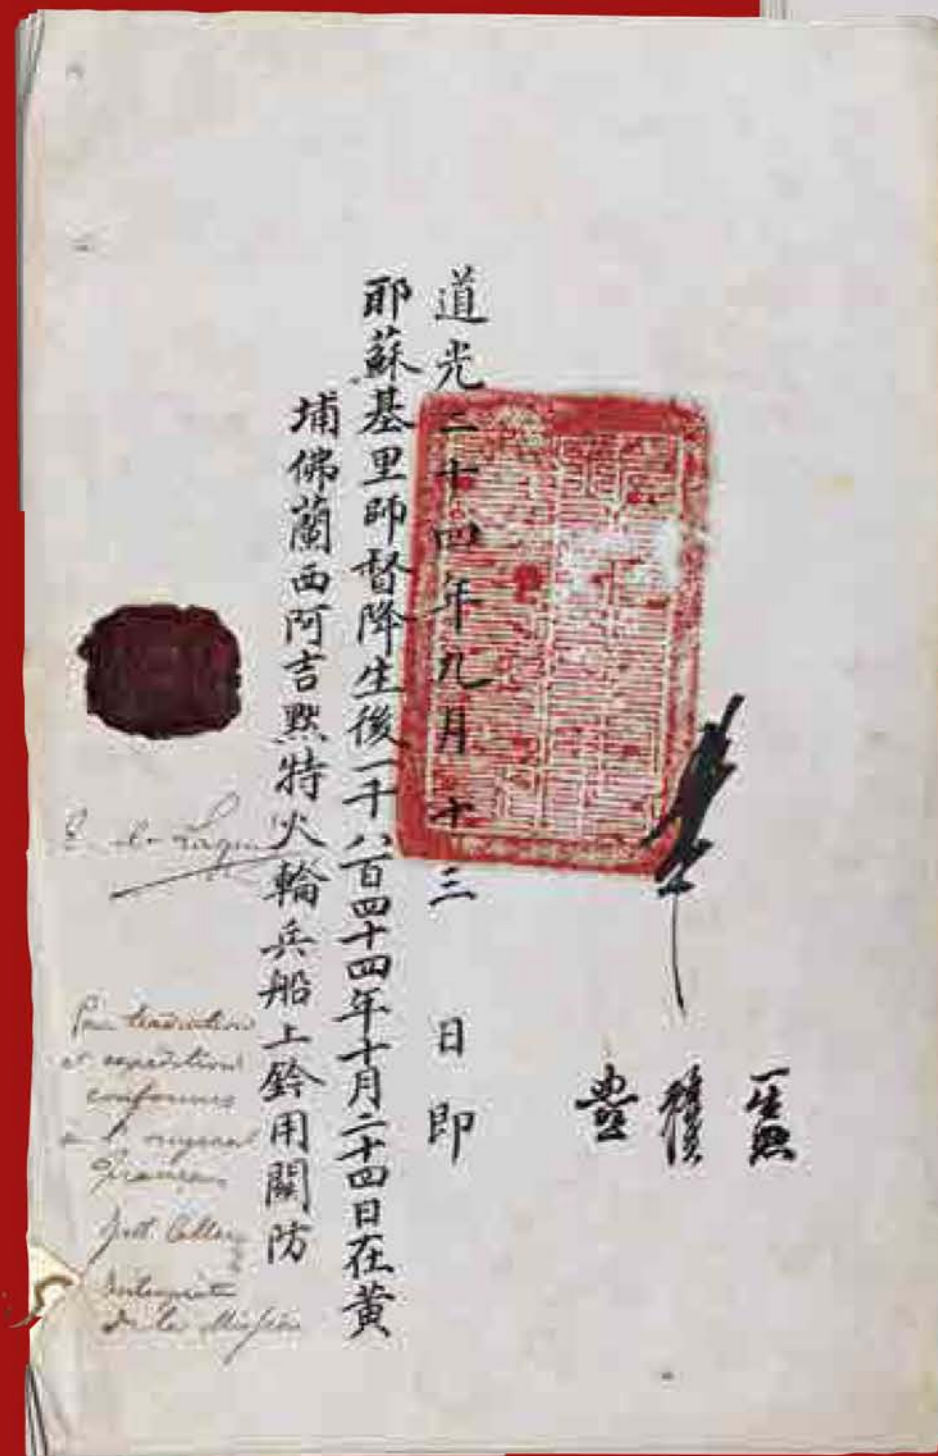 道光二十四年九月十三日即
耶蘇基里師督降生後一千八百四十四年十月二十四日在黃
埔佛蘭西阿吉黙特火輪兵船上鈐用關防
Pour traduction
et expédition
conformes
à l'original
Français
Callery
Interprète
de la Mission